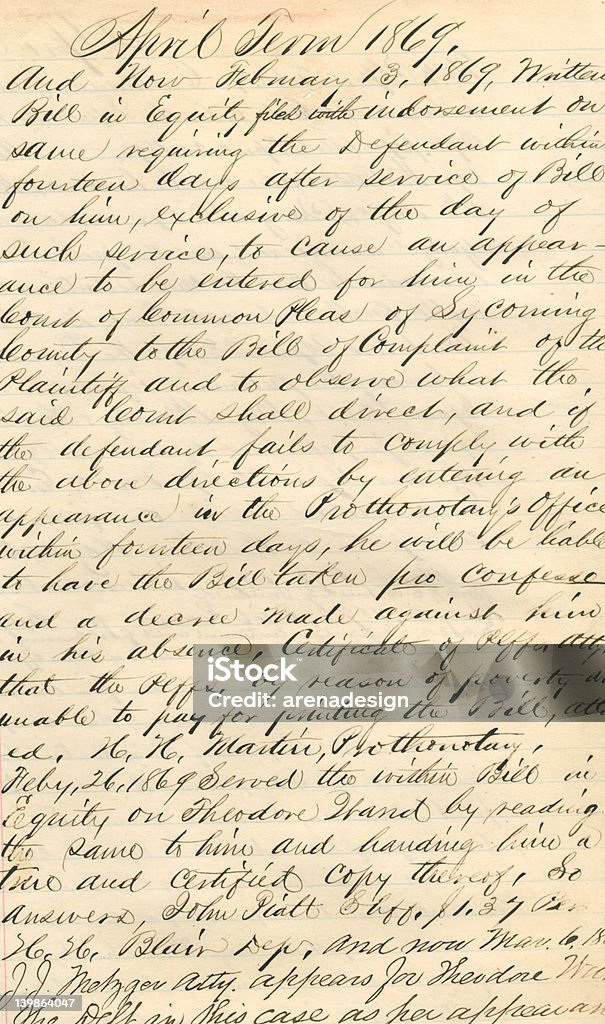 April Term 1869.
And Now February 13, 1869, Written
Bill in Equity filed with indorsement on
same requiring the Defendant within
fourteen days after service of Bill
on him, exclusive of the day of
such service, to cause an appear-
ance to be entered for him in the
Court of Common Pleas of Lycoming
County to the Bill of Complaint of the
Plaintiff and to observe what the
said Court shall direct, and if
the defendant fails to comply with
the above directions by entering an
appearance in the Prothonotary's Office
within fourteen days, he will be liable
to have the Bill taken pro confesso
and a decree made against him
in his absence. Certificate of Plffs Atty
that the Plffs, by reason of poverty
unable to pay for printing the Bill, att
ed. H. H. Martin, Prothonotary.
Feby, 26, 1869 Served the within Bill in
Equity on Theodore by reading
the same to him and handing him a
true and certified copy thereof. So
answers, John Piatt Shff. $1.37 Per
H. H. Blair Dep. And now Mar. 6, 18
J.J. Metzger Atty. appears for Theodore
the Deft in this case as per appearan
iStock
Credit: arenadesign
139864047